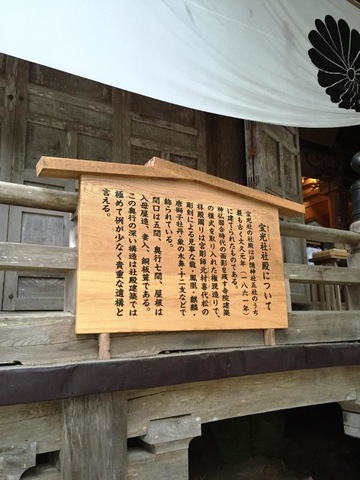 宝光社社殿について
宝光社の社殿は戸隠神社五社のうち
最も古く文久元年（一八六一年）
に建てられたものである。
神仏混合時代の面影を残す寺院建築
の様式を取り入れた権現造りで、
拝殿周りは宮彫師北村喜代松の
彫刻による見事な龍・鳳凰・麒麟・
唐獅子牡丹・象の木鼻・十二支などで
飾られている。
間口は五間、奥行七間、屋根は
入母屋造、妻入、銅板葺である。
この奥行の深い構造は社殿建築では
極めて例が少なく貴重な遺構と
言える。